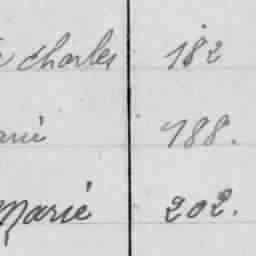 Charles 182
arié 188.
Marié 202.